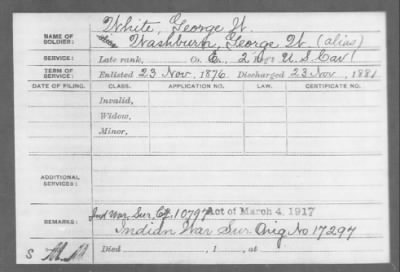 White, George W.
NAME OF SOLDIER:
Washburn, George W. (alias)
SERVICE: Late rank, Co. E., 2 Reg't U.S. Cav'l
TERM OF SERVICE: Enlisted 23 Nov., 1876, Discharged 23 Nov., 1881
DATE OF FILING. CLASS. APPLICATION NO. LAW. CERTIFICATE NO.
Invalid,
Widow,
Minor,
ADDITIONAL SERVICES:
Ind War, Sur, Ctf. 10797 Act of March 4, 1917
REMARKS: Indian War Sur. Orig. No 17297
S
Died , 1 , at